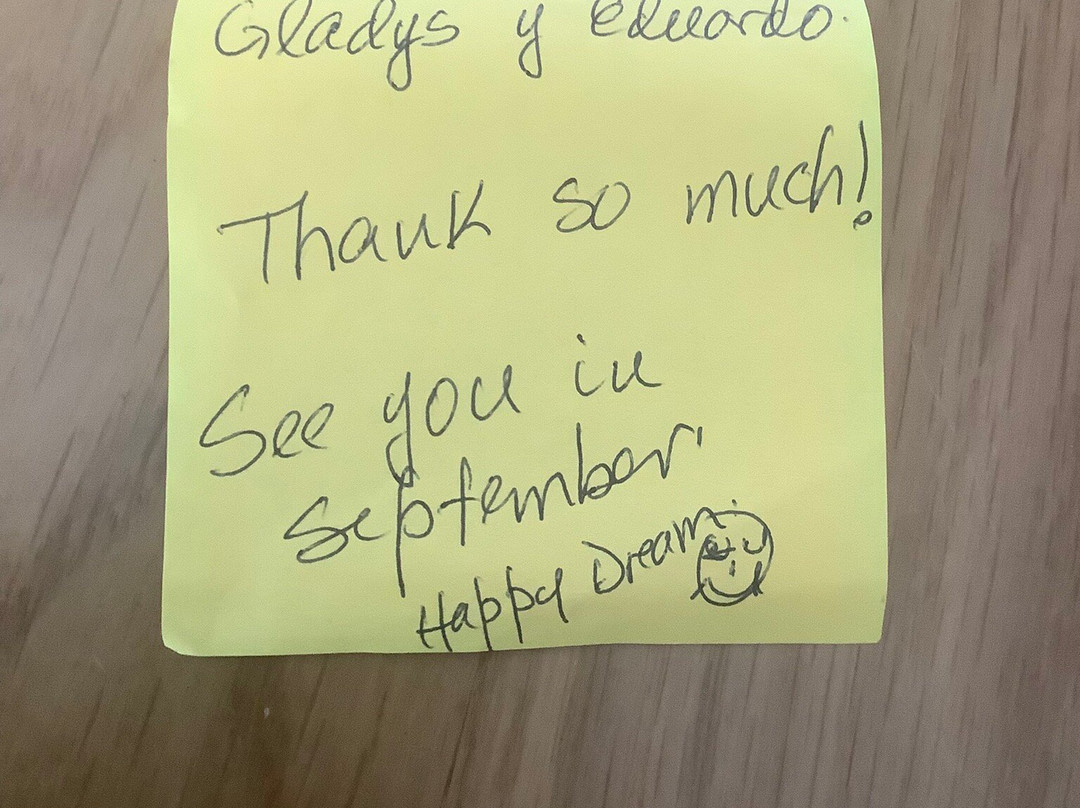 Gladys y Eduardo.
Thank so much!
See you in
September
Happy Dream.